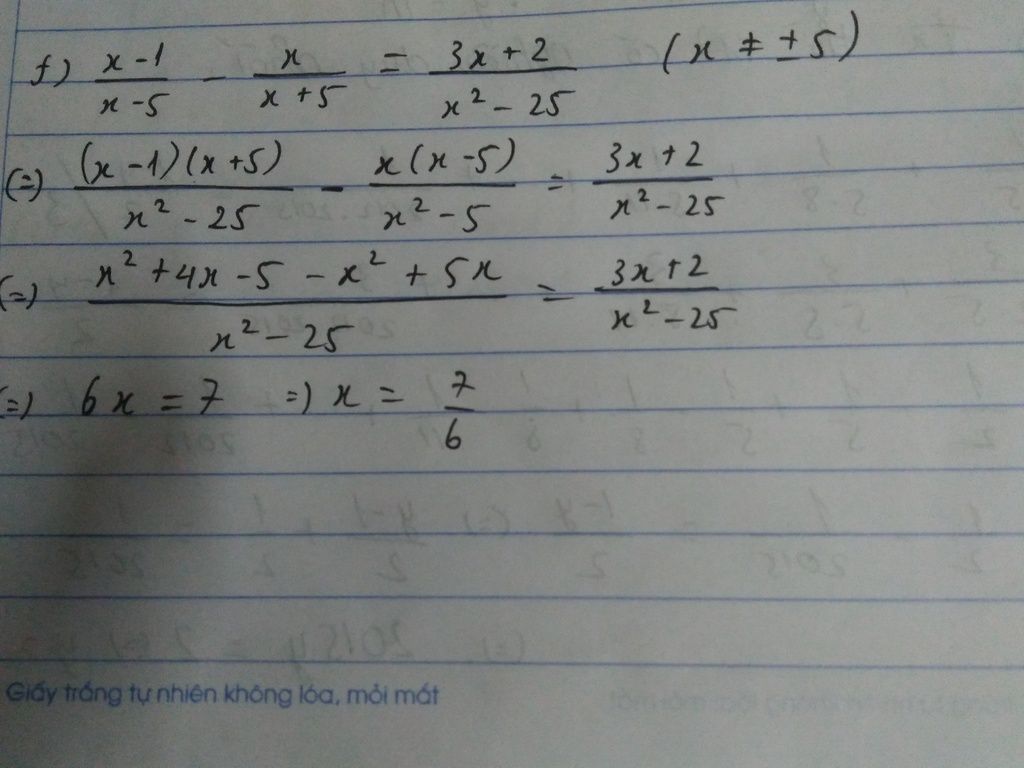 f) \frac{x-1}{x-5} - \frac{x}{x+5} = \frac{3x+2}{x^2-25} (x ≠ ±5)
(=) \frac{(x-1)(x+5)}{x^2-25} - \frac{x(x-5)}{x^2-5} = \frac{3x+2}{x^2-25}
(=) \frac{x^2+4x-5-x^2+5x}{x^2-25} = \frac{3x+2}{x^2-25}
(=) 6x = 7 =) x = \frac{7}{6}
Giấy trắng tự nhiên không lóa, mỏi mắt